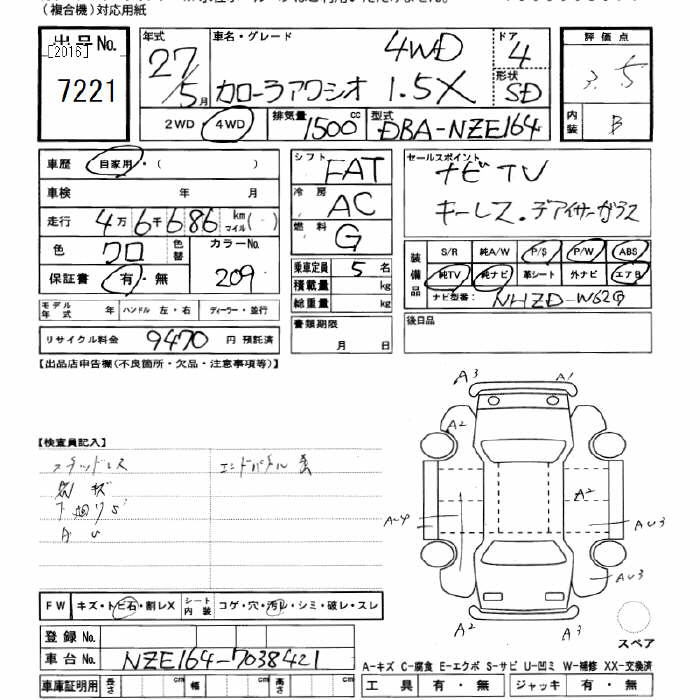 (複合機)対応用紙
出品No.
[2016]
7221
年式 車名・グレード ドア 評価点
27/5月 カローラアクシオ 4WD 1.5X 4 3.5
形状 SD
内装 B
2WD・4WD 排気量 1500cc 型式 DBA-NZE164
車歴 自家用・( )
車検 年 月
走行 4万6千686 km マイル( )
色 クロ 色替 カラーNo. 209
保証書 有・無
モデル年式 年 ハンドル 左・右 ディーラー・並行
リサイクル料金 9470 円 預託済
シフト FAT
冷房 AC
燃料 G
乗車定員 5 名
積載量 kg
総重量 kg
書類期限
月 日
セールスポイント
ナビTV
キーレス・デアイサーガラス
装備品 S/R 純A/W P/S P/W ABS
純TV 純ナビ 革シート 外ナビ エアB
ナビ型番: NHZD-W62G
後日品
【出品店申告欄(不良箇所・欠品・注意事項等)】
【検査員記入】
スタッドレス
下廻りS
AU
A3 A1
A2
A2
A-4 AU3
AU3
A2 A3
スペア
FW キズ・トビ石・割レX シート内装 コゲ・穴・汚レ・シミ・破レ・スレ
登録No.
車台No. NZE164-7038421
車庫証明用 長さ cm 幅 cm 高さ cm
A-キズ C-腐食 E-エクボ S-サビ U-凹ミ W-補修 XX-交換済
工具 有・無 ジャッキ 有・無